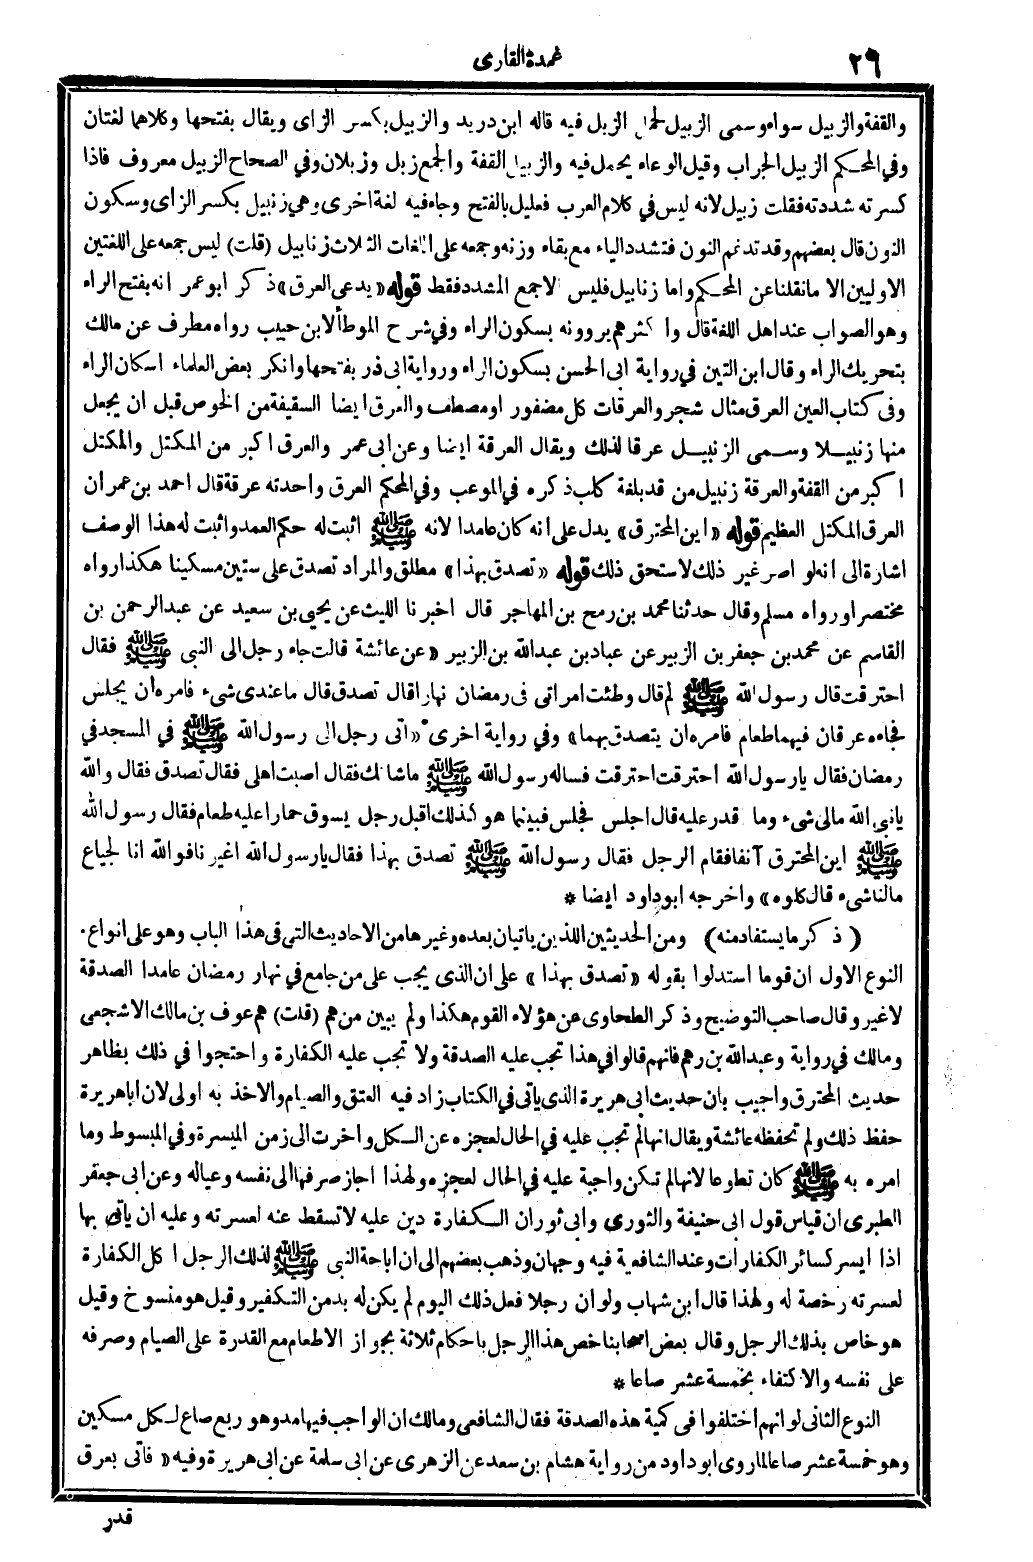 ٢٩
عمدة القارى
والقفة والزبيل سواء وسمى الزبيل لحمل الزبل فيه قاله ابن دريد والزبيل بكسر الزاى ويقال بفتحها وكلاهما لغتان
وفي المحكم الزبيل الجراب وقيل الوعاء يحمل فيه والزبيل القفة والجمع زبل وزبلان وفي الصحاح الزبيل معروف فاذا
كسرته شددته فقلت زبيل لانه ليس في كلام العرب فعليل بالفتح وجاء فيه لغة اخرى وهي زنبيل بكسر الزاى وسكون
النون قال بعضهم وقد تدغم النون فتشدد الياء مع بقاء وزنه وجمعه على اللغات الثلاث زنابيل (قلت) ليس جمعه على اللغتين
الاوليين الا ما نقلنا عن المحكم واما زنابيل فليس الا جمع المشدد فقط قوله «يدعى العرق» ذكر ابو عمر انه بفتح الراء
وهو الصواب عند اهل اللغة قال واكثرهم يروونه بسكون الراء وفي شرح الموطأ لابن حبيب رواه مطرف عن مالك
بتحريك الراء وقال ابن التين في رواية ابى الحسن بسكون الراء ورواية ابى ذر بفتحها وانكر بعض العلماء اسكان الراء
وفى كتاب العين العرق مثال شجر والعرقات كل مضفور او مصطف والعرق ايضا السقيفة من الخوص قبل ان يجعل
منها زنبيلا وسمى الزنبيل عرقا لذلك ويقال العرقة ايضا وعن ابى عمر والعرق اكبر من المكتل والمكتل
اكبر من القفة والعرقة زنبيل من قد بلغة كلب ذكره في الموعب وفي المحكم العرق واحدته عرقة قال احمد بن عمران
العرق المكتل العظيم قوله «اين المحترق» يدل على انه كان عامدا لانه ﷺ اثبت له حكم العمد واثبت له هذا الوصف
اشارة الى انه لو اصر غير ذلك لاستحق ذلك قوله «تصدق بهذا» مطلق والمراد تصدق على ستين مسكينا هكذا رواه
مختصرا ورواه مسلم وقال حدثنا محمد بن رمح بن المهاجر قال اخبرنا الليث عن يحيى بن سعيد عن عبد الرحمن بن
القاسم عن محمد بن جعفر بن الزبير عن عباد بن عبد الله بن الزبير «عن عائشة قالت جاء رجل الى النبى ﷺ فقال
احترقت قال رسول الله ﷺ لم قال وطئت امراتى فى رمضان نهارا قال تصدق قال ما عندى شىء فامره ان يجلس
فجاءه عرقان فيهما طعام فامره ان يتصدق بهما» وفي رواية اخرى «اتى رجل الى رسول الله ﷺ في المسجد في
رمضان فقال يا رسول الله احترقت احترقت فساله رسول الله ﷺ ما شانك فقال اصبت اهلى فقال تصدق فقال والله
يا نبى الله مالى شىء وما قدر عليه قال اجلس فجلس فبينما هو كذلك اقبل رجل يسوق حمارا عليه طعام فقال رسول الله
ﷺ اين المحترق آنفا فقام الرجل فقال رسول الله ﷺ تصدق بهذا فقال يا رسول الله اغيرنا فوالله انا لجياع
مالنا شىء قال كلوه» واخرجه ابو داود ايضا *
(ذكر ما يستفاد منه) ومن الحديثين اللذين ياتيان بعده وغيرها من الاحاديث التى فى هذا الباب وهو على انواع.
النوع الاول ان قوما استدلوا بقوله «تصدق بهذا» على ان الذى يجب على من جامع في نهار رمضان عامدا الصدقة
لا غير وقال صاحب التوضيح وذكر الطحاوى عن هؤلاء القوم هكذا ولم يبين من هم (قلت) هم عوف بن مالك الاشجعى
ومالك في رواية وعبد الله بن رهم فانهم قالوا في هذا تجب عليه الصدقة ولا تجب عليه الكفارة واحتجوا في ذلك بظاهر
حديث المحترق واجيب بان حديث ابى هريرة الذى ياتى في الكتاب زاد فيه العتق والصيام والاخذ به اولى لان ابا هريرة
حفظ ذلك ولم تحفظه عائشة ويقال انها لم تجب عليه في الحال لعجزه عن الكل واخرت الى زمن الميسرة وفي المبسوط وما
امره به ﷺ كان تطوعا لانها لم تكن واجبة عليه في الحال لعجزه ولهذا اجاز صرفها الى نفسه وعياله وعن ابى جعفر
الطبرى ان قياس قول ابى حنيفة والثورى وابى ثور ان الكفارة دين عليه لا تسقط عنه لعسرته وعليه ان ياتى بها
اذا ايسر كسائر الكفارات وعند الشافعية فيه وجهان وذهب بعضهم الى ان اباحة النبى ﷺ لذلك الرجل اكل الكفارة
لعسرته رخصة له ولهذا قال ابن شهاب ولو ان رجلا فعل ذلك اليوم لم يكن له بد من التكفير وقيل هو منسوخ وقيل
هو خاص بذلك الرجل وقال بعض اصحابنا خص هذا الرجل باحكام ثلاثة بجواز الاطعام مع القدرة على الصيام وصرفه
على نفسه والاكتفاء بخمسة عشر صاعا *
النوع الثانى لو انهم اختلفوا فى كمية هذه الصدقة فقال الشافعى ومالك ان الواجب فيها مد وهو ربع صاع لكل مسكين
وهو خمسة عشر صاعا لما روى ابو داود من رواية هشام بن سعد عن الزهرى عن ابى سلمة عن ابى هريرة وفيه «فاتى بعرق
قدر